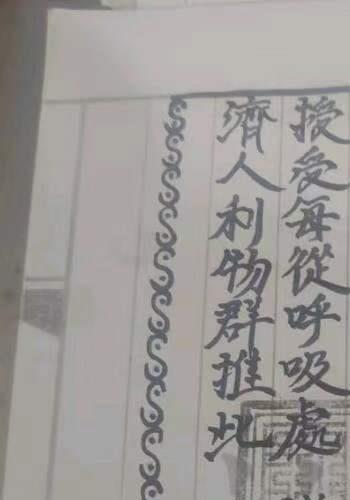 授受每從呼吸處
濟人利物群推此